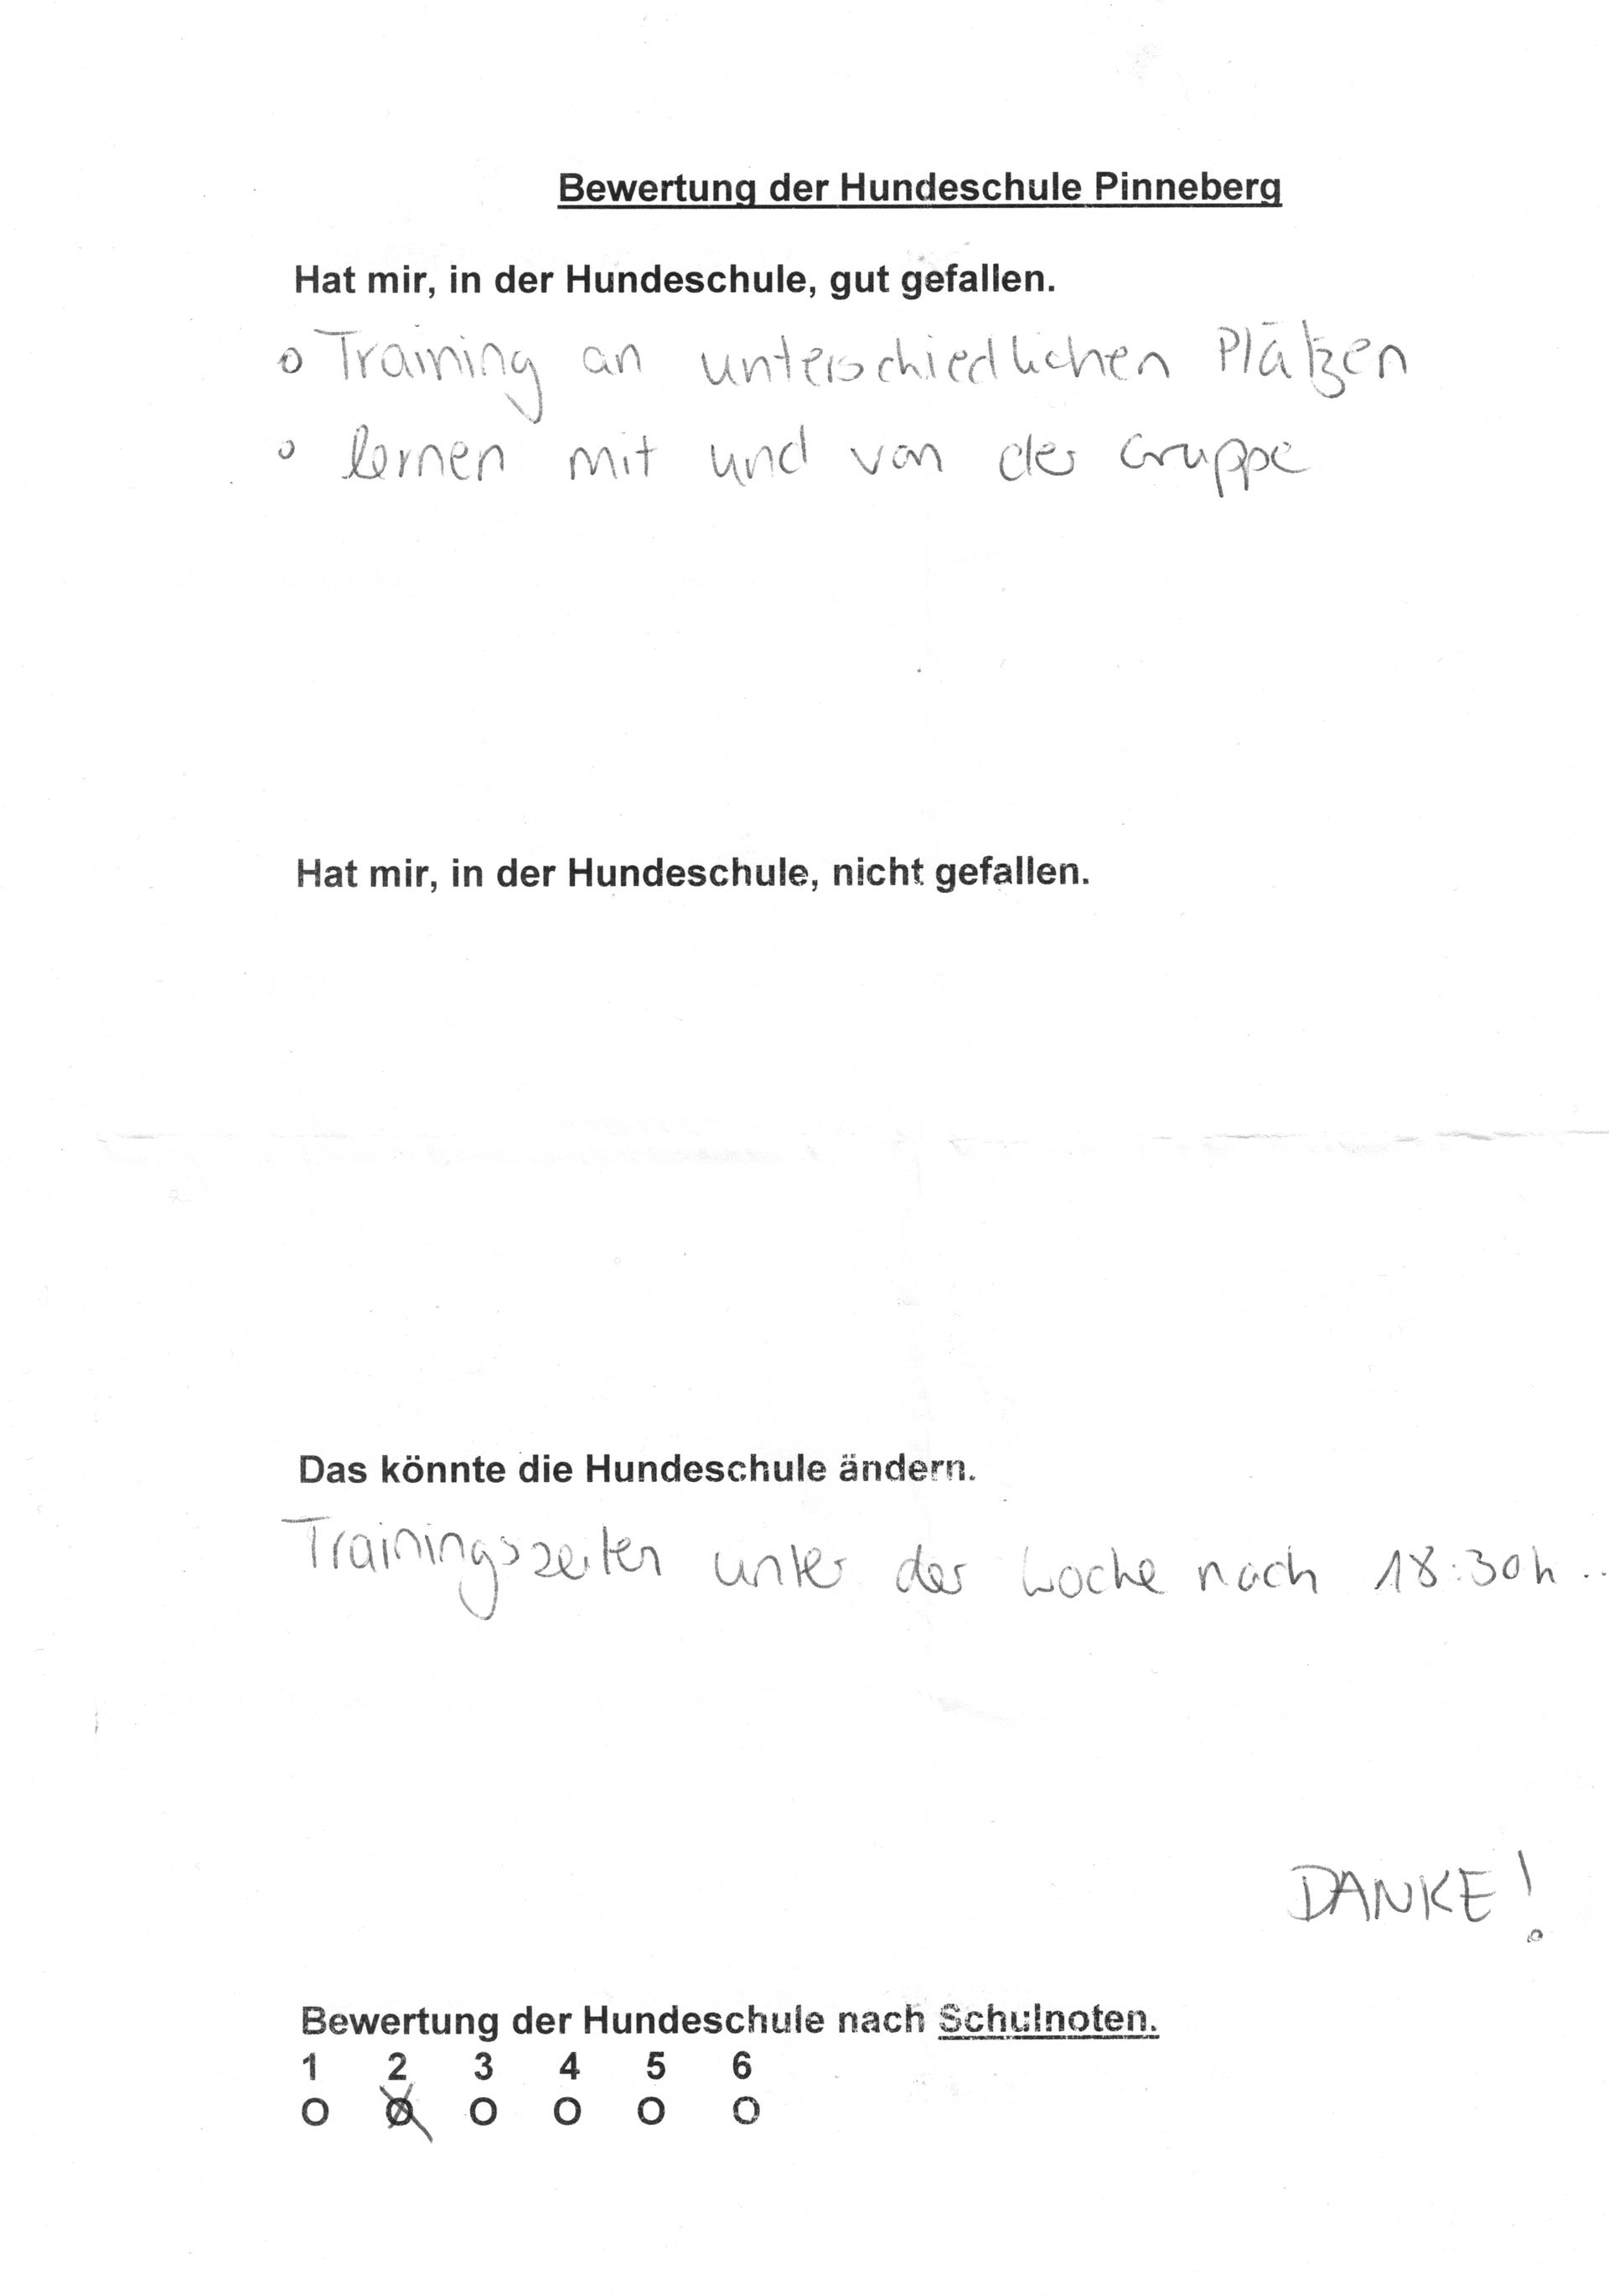 Bewertung der Hundeschule Pinneberg
Hat mir, in der Hundeschule, gut gefallen.
o Training an unterschiedlichen Plätzen
o lernen mit und von der Gruppe
Hat mir, in der Hundeschule, nicht gefallen.
Das könnte die Hundeschule ändern.
Trainingszeiten unter der Woche nach 18:30h..
DANKE!
Bewertung der Hundeschule nach Schulnoten.
1 2 3 4 5 6
O O O O O O